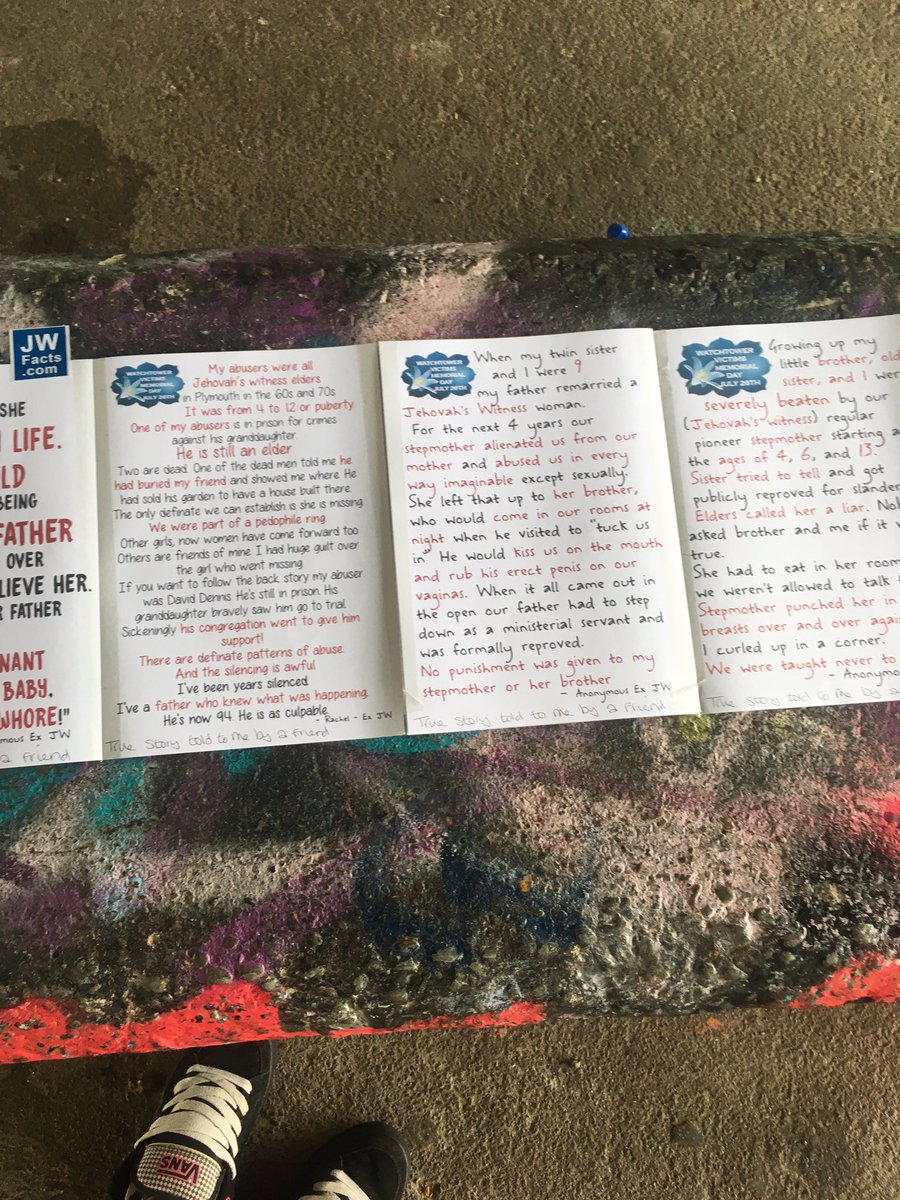 JW
Facts
.com
SHE
LIFE.
LD
BEING
FATHER
OVER
LIEVE HER.
R FATHER
NANT
BABY.
WHORE!"
mous Ex JW
a friend
WATCHTOWER
VICTIMS
MEMORIAL
DAY
JULY 26TH
My abusers were all
Jehovah's witness elders
in Plymouth in the 60s and 70s
It was from 4 to 12 or puberty
One of my abusers is in prison for crimes
against his granddaughter
He is still an elder
Two are dead. One of the dead men told me he
had buried my friend and showed me where. He
had sold his garden to have a house built there.
The only definate we can establish is she is missing.
We were part of a pedophile ring.
Other girls, now women have come forward too
Others are friends of mine I had huge guilt over
the girl who went missing
If you want to follow the back story my abuser
was David Dennis He's still in prison. His
granddaughter bravely saw him go to trial.
Sickeningly his congregation went to give him
support!
There are definate patterns of abuse.
And the silencing is awful
I've been years silenced
I've a father who knew what was happening.
He's now 94. He is as culpable.
- Rachel - Ex JW
True Story told to me by a friend
WATCHTOWER
VICTIMS
MEMORIAL
DAY
JULY 26TH
When my twin sister
and I were 9
my father remarried a
Jehovah's Witness woman.
For the next 4 years our
stepmother alienated us from our
mother and abused us in every
way imaginable except sexually.
She left that up to her brother,
who would come in our rooms at
night when he visited to "tuck us
in" He would kiss us on the mouth
and rub his erect penis on our
vaginas. When it all came out in
the open our father had to step
down as a ministerial servant and
was formally reproved.
No punishment was given to my
stepmother or her brother
- Anonymous Ex JW
True Story told to me by a friend
WATCHTOWER
VICTIMS
MEMORIAL
DAY
JULY 26TH
Growing up my
little brother, old
sister, and I were
severely beaten by our
(Jehovah's witness) regular
pioneer stepmother starting a
the ages of 4, 6, and 13.
Sister tried to tell and got
publicly reproved for slander
Elders called her a liar. Nob
asked brother and me if it w
true.
She had to eat in her room
we weren't allowed to talk
Stepmother punched her in
breasts over and over again
I curled up in a corner.
We were taught never to
- Anonymou
True Story told to me by a
VANS